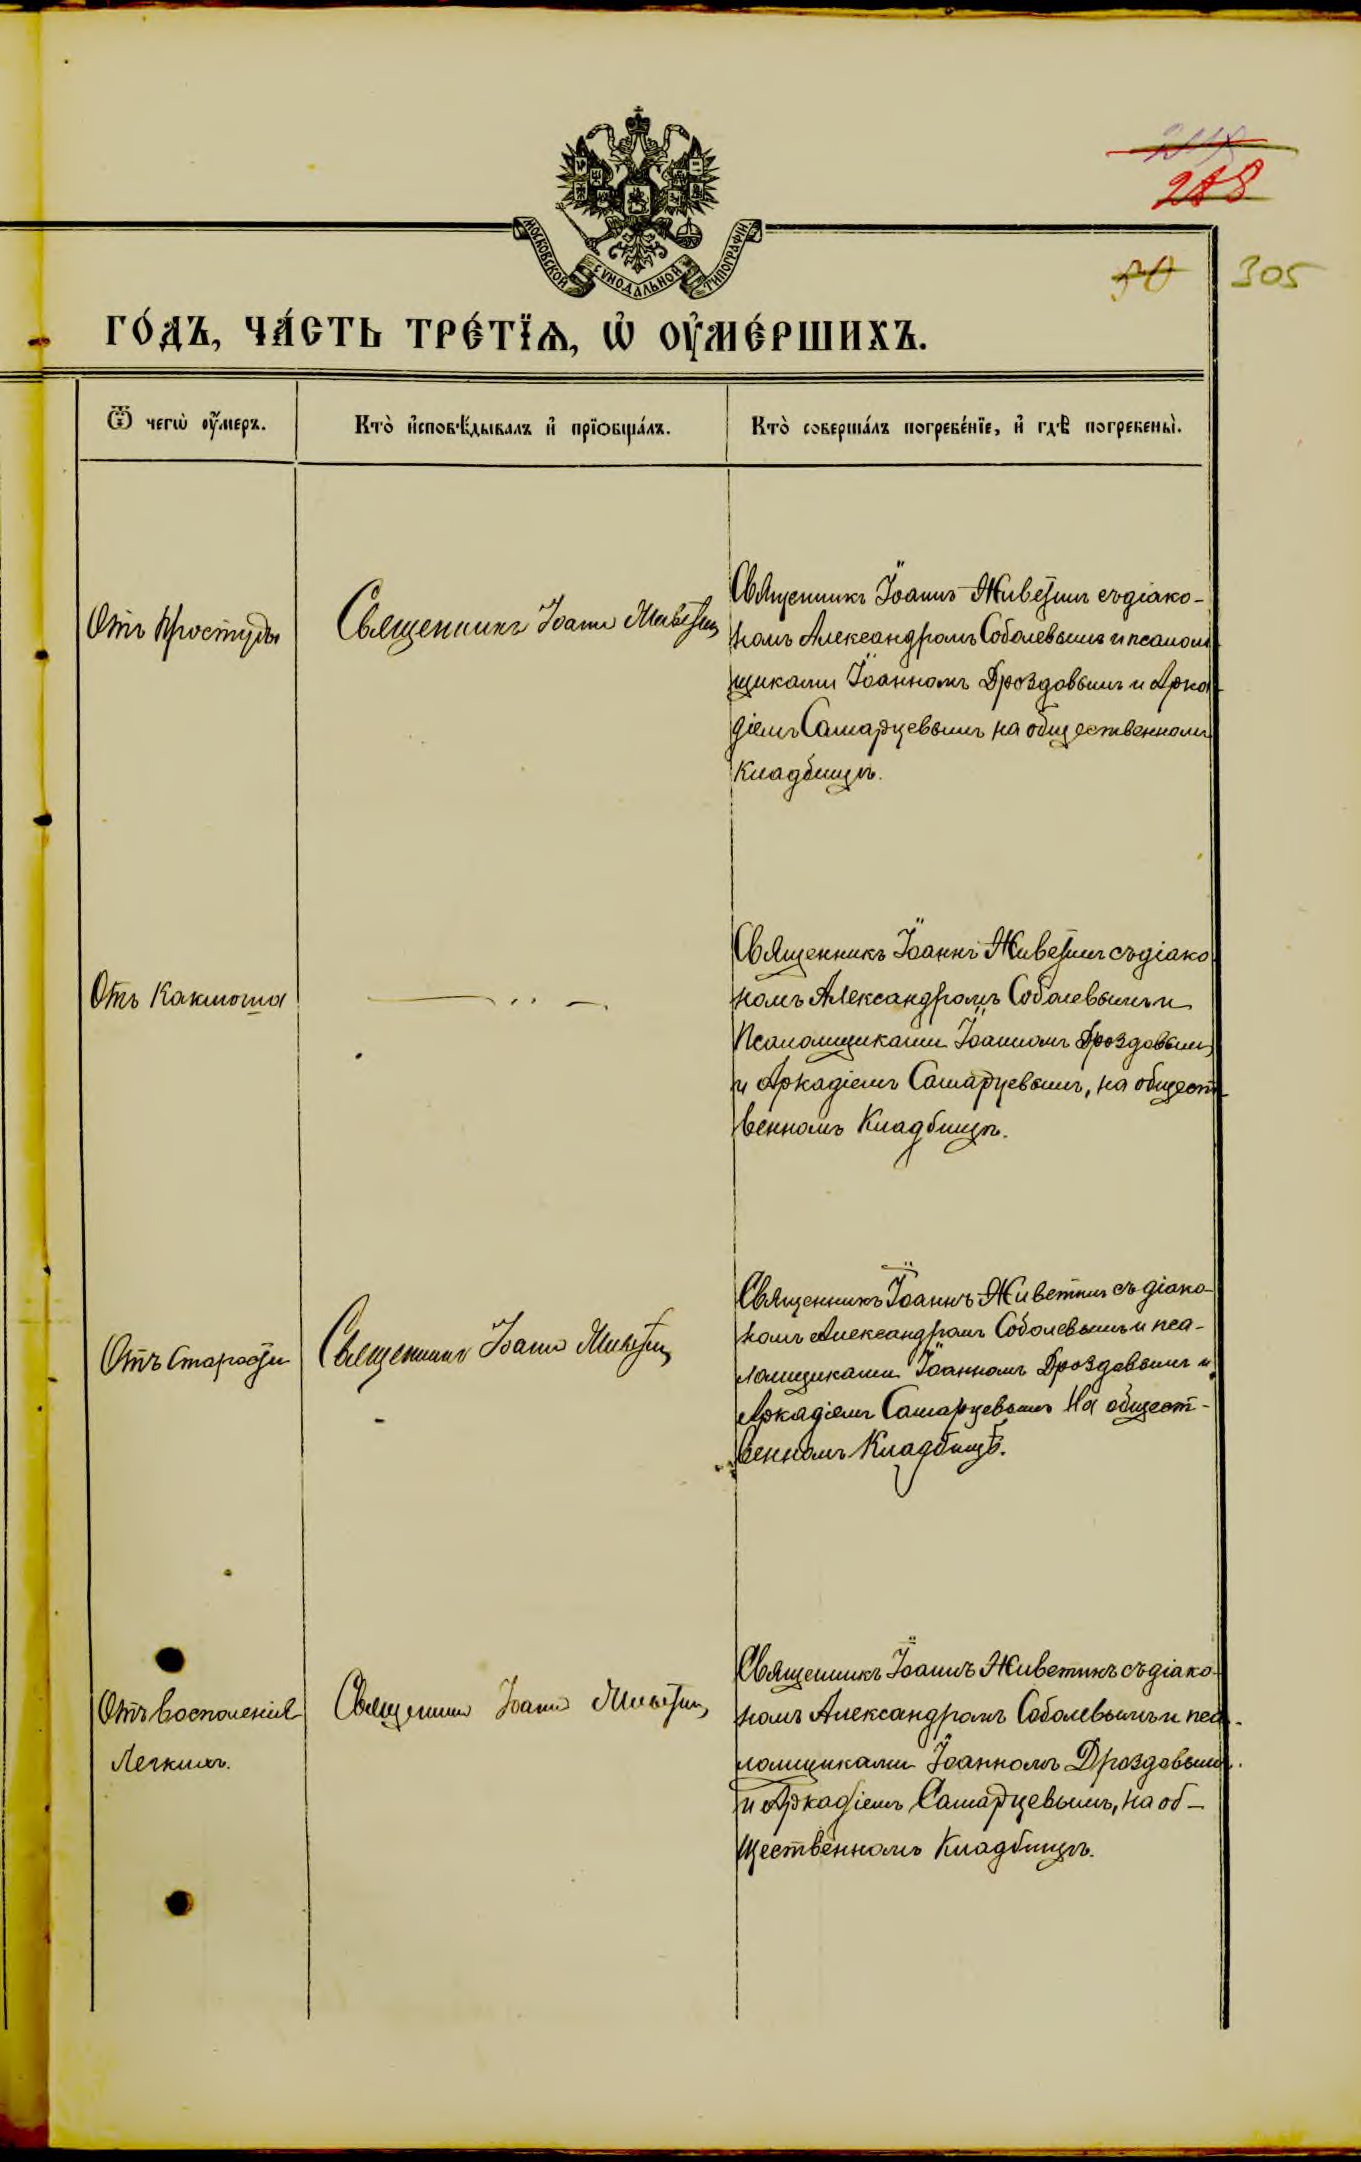 248
288
МОСКОВСКОЙ СѴНОДАЛЬНОЙ ТИПОГРАФІИ
50
305
ГО́ДЪ, ЧА́СТЬ ТРЕ́ТЇѦ, Ѡ҆ ОУ҆МЕ́РШИХЪ.
Ѿ чегѡ̀ оу҆́меръ.
Кто̀ и҆сповѣ́дывалъ и҆ прїѡбща́лъ.
Кто̀ соверша́лъ погребе́нїе, и҆ гдѣ̀ погребены̀.
Отъ простуды
Священникъ Іоаннъ Живетинъ
Священникъ Іоаннъ Живетинъ съ діако-
номъ Александромъ Соболевымъ и псалом
щиками Іоанномъ Дроздовымъ и Арка-
діемъ Самарцевымъ на общественномъ
кладбищѣ.
Отъ Каклюша
Священникъ Іоаннъ Живетинъ съ діако
номъ Александромъ Соболевымъ и
Псаломщиками Іоанномъ Дроздовымъ
и Аркадіемъ Самарцевымъ, на общест-
венномъ Кладбищѣ.
Отъ Старости
Священникъ Іоаннъ Живетинъ
Священникъ Іоаннъ Живетинъ съ діако-
номъ Александромъ Соболевымъ и пса-
ломщиками Іоанномъ Дроздовымъ и
Аркадіемъ Самарцевымъ на общест-
венномъ Кладбищѣ.
Отъ Восполенія
Легкихъ.
Священникъ Іоаннъ Живетинъ
Священникъ Іоаннъ Живетинъ съ діако-
номъ Александромъ Соболевымъ и пса-
ломщиками Іоанномъ Дроздовымъ
и Аркадіемъ Самарцевымъ, на об-
щественномъ Кладбищѣ.